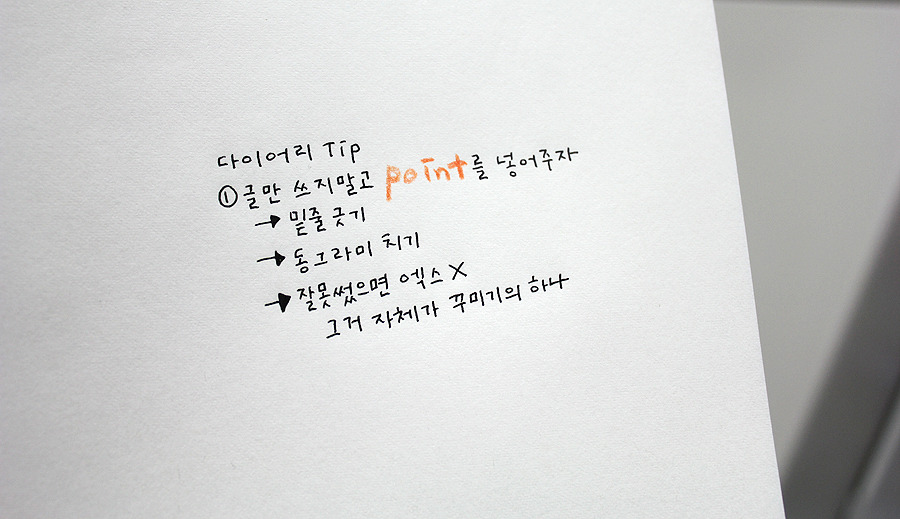 다이어리 Tip
① 글만 쓰지말고 point를 넣어주자
→ 밑줄 긋기
→ 동그라미 치기
→ 잘못썼으면 엑스 X
그거 자체가 꾸미기의 하나